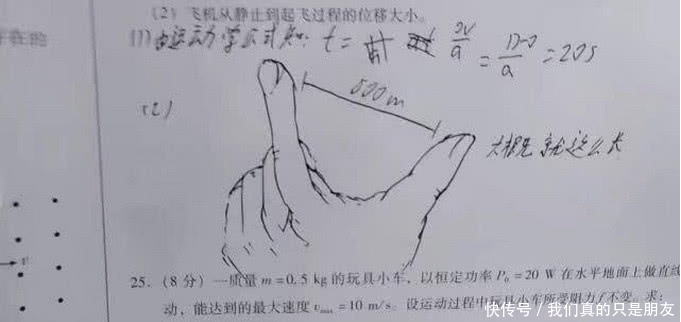 (2) 飞机从静止到起飞过程的位移大小。
存在的
(1) 由运动学公式知: t = = = 20s
(2)
500m
大概就这么大
25. (8 分) 一质量 m=0.5 kg 的玩具小车, 以恒定功率 P₀=20 W 在水平地面上做直线
动, 能达到的最大速度 vmax=10 m/s。设运动过程中玩具小车所受阻力 f 不变。求:
快传号/我们真的只是朋友